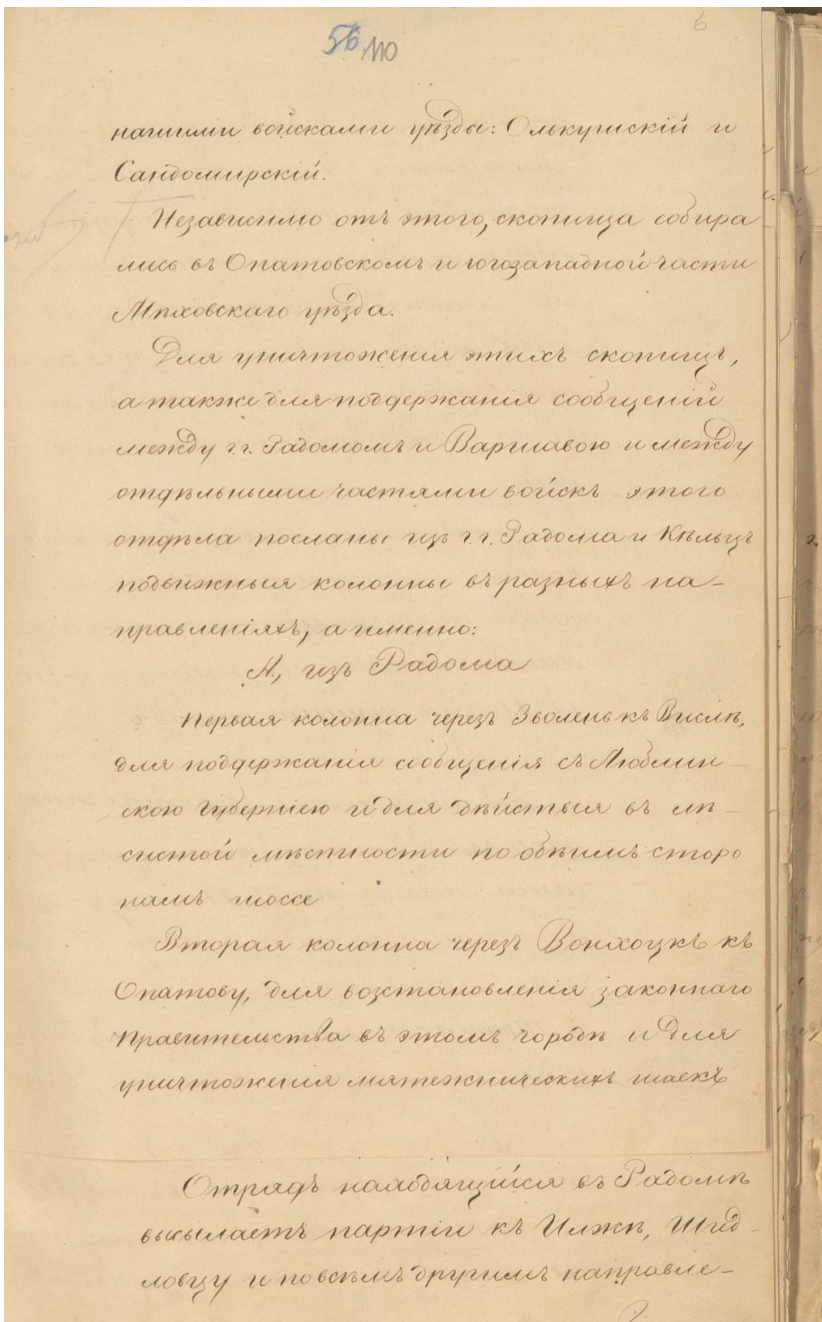 6
56 110
нашими войсками уѣзда: Олькушскій и
Сандомирскій.
Независимо отъ этого, скопища собира
лись въ Опатовскомъ и югозападной части
Мѣховскаго уѣзда.
Для уничтоженія этихъ скопищъ,
а также для поддержанія сообщеній
между г.г. Радомомъ и Варшавою и между
отдѣльными частями войскъ этого
отдѣла посланы изъ г.г. Радома и Кѣльцъ
подвижныя колонны въ разныхъ на-
правленіяхъ, а именно:
А, изъ Радома
Первая колонна черезъ Зволень къ Вислѣ,
для поддержанія сообщенія съ Люблин-
скою Губерніею и для дѣйствія въ лѣ-
систой мѣстности по обѣимъ сторо
намъ шоссе
Вторая колонна черезъ Вонхоцкъ къ
Опатову, для возстановленія законнаго
Правительства въ этомъ городѣ и для
уничтоженія мятежническихъ шаекъ
Отрядъ находящійся въ Радомѣ
высылаетъ партіи къ Илжѣ, Шид-
ловцу и по всѣмъ другимъ направле-